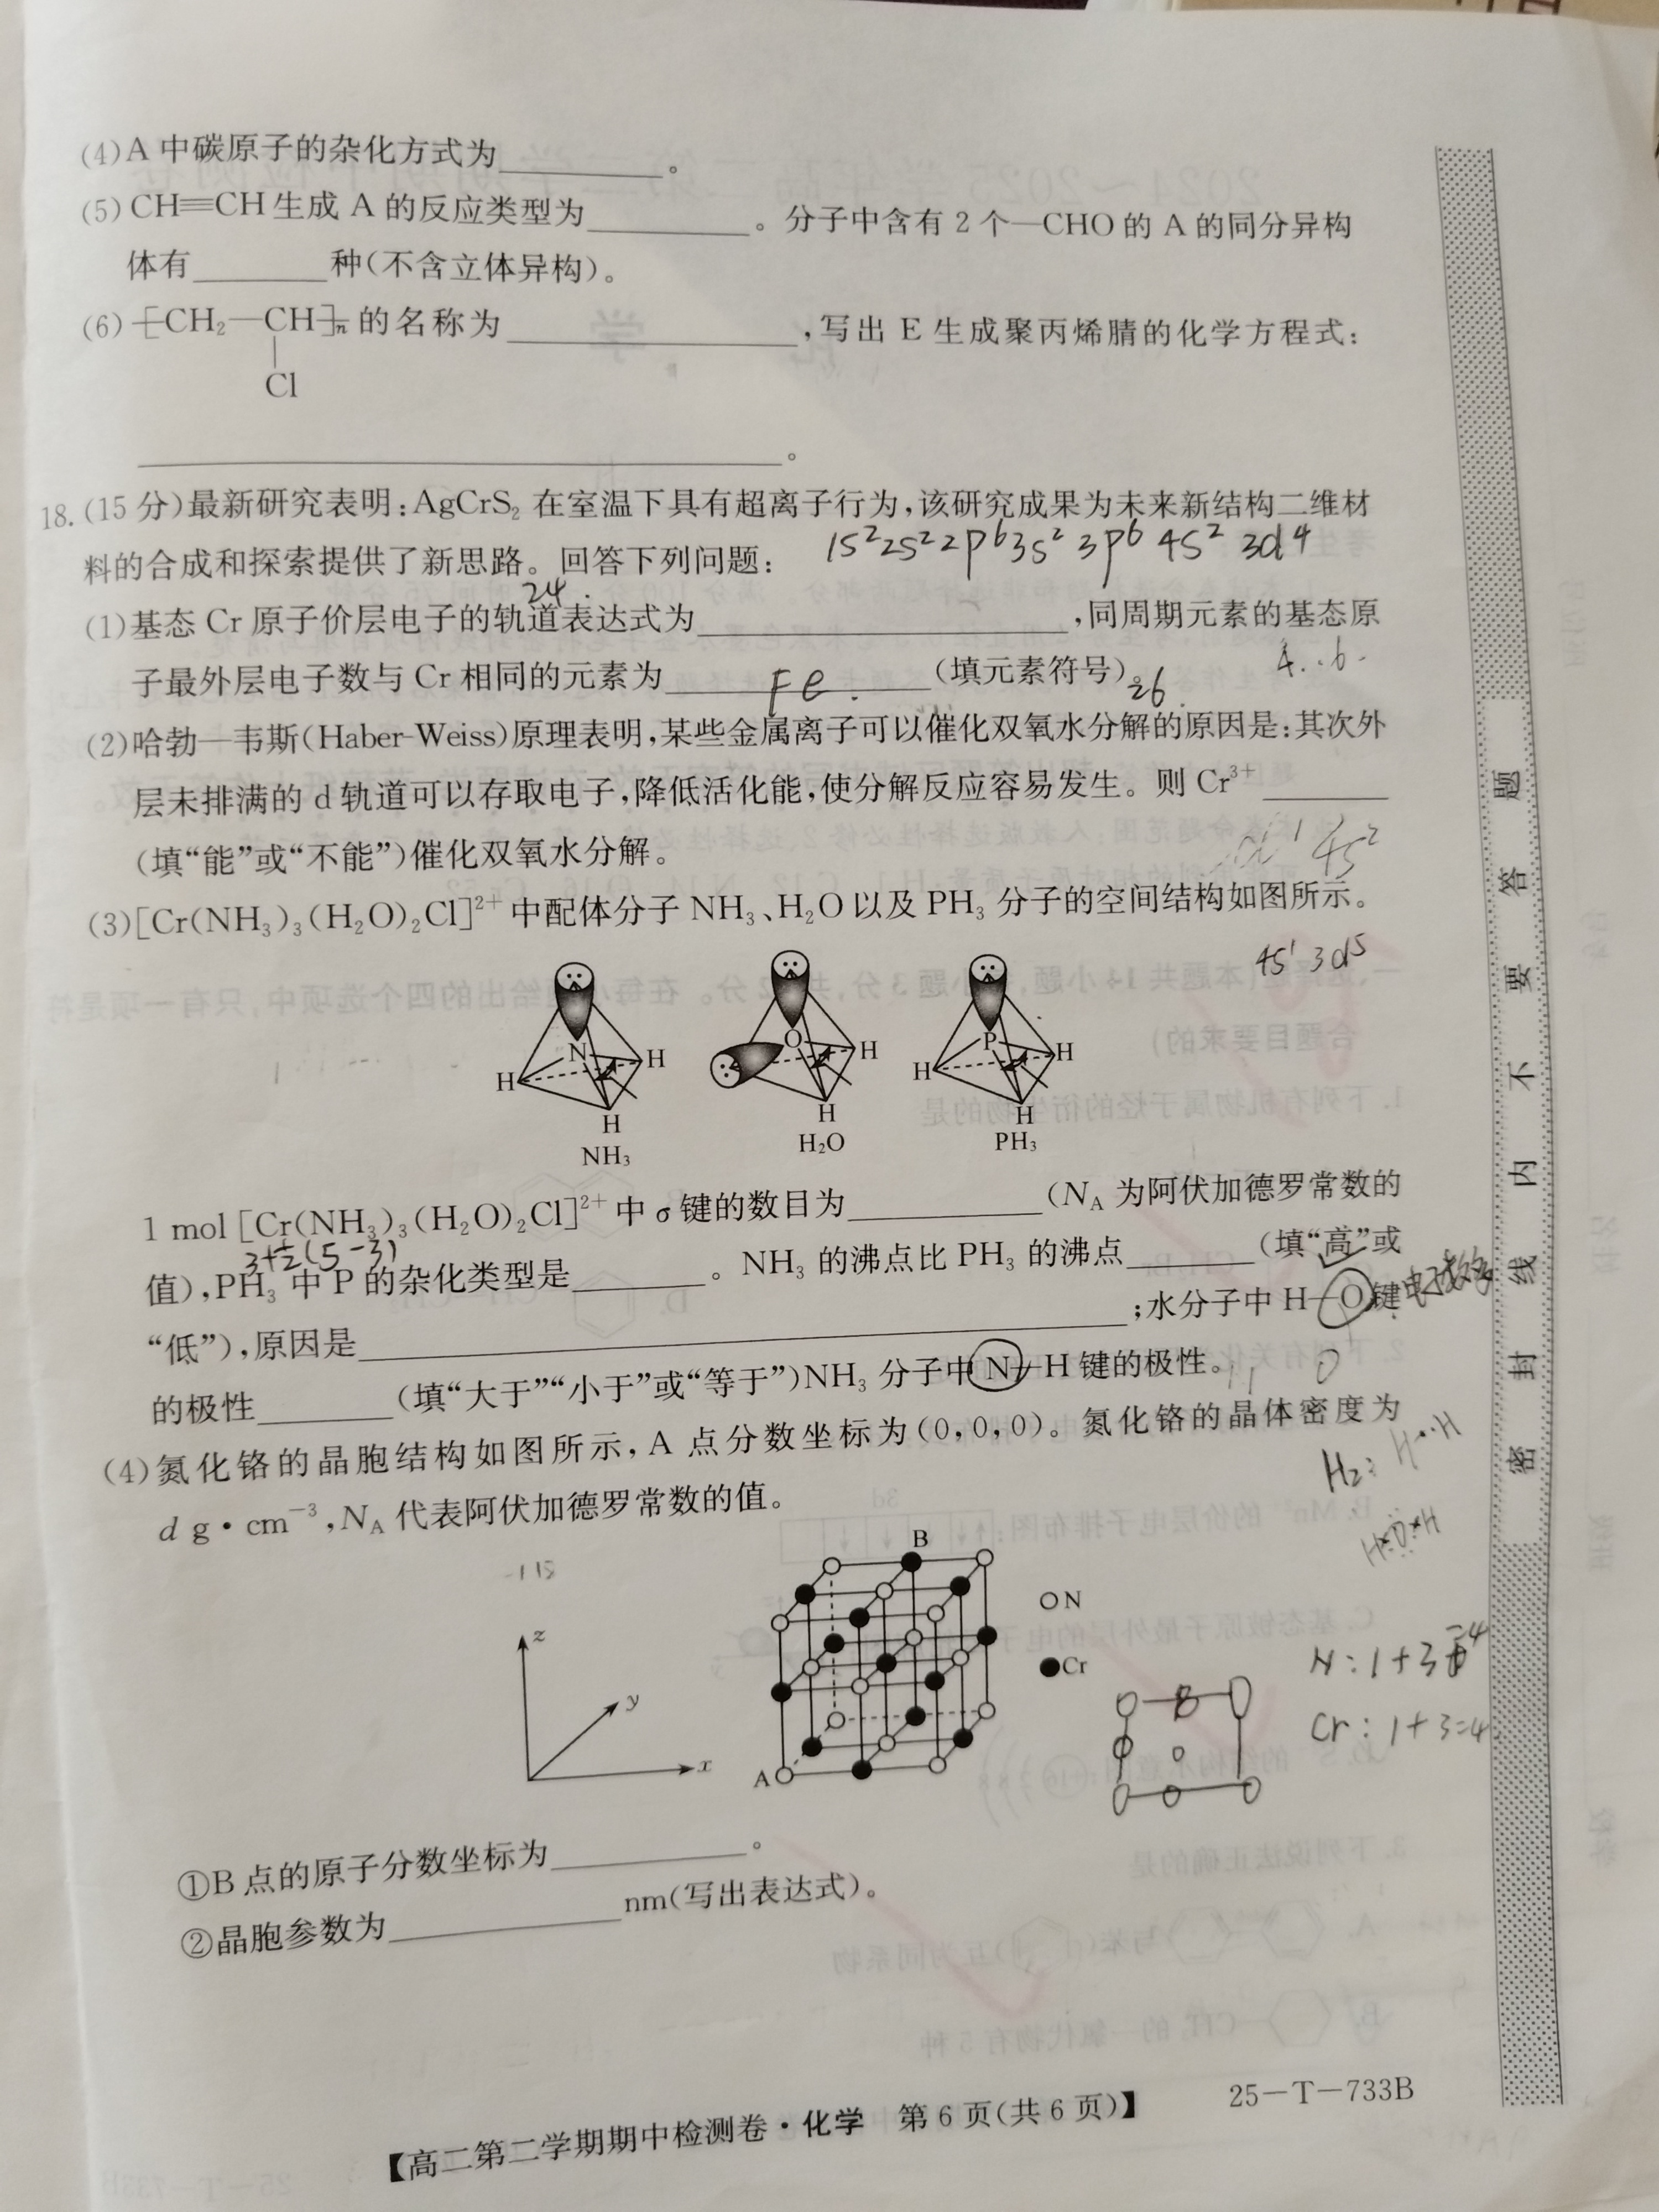 (4)A中碳原子的杂化方式为________。
(5)CH≡CH生成A的反应类型为________。分子中含有2个—CHO的A的同分异构
体有________种(不含立体异构)。
(6)⁅CH₂—CH⁆ₙ的名称为________,写出E生成聚丙烯腈的化学方程式:
Cl
________。
18.(15分)最新研究表明:AgCrS₂在室温下具有超离子行为,该研究成果为未来新结构二维材
料的合成和探索提供了新思路。回答下列问题:
1s²2s²2p⁶3s²3p⁶4s²3d⁴
24
(1)基态Cr原子价层电子的轨道表达式为________,同周期元素的基态原
子最外层电子数与Cr相同的元素为 Fe (填元素符号)。
26
(2)哈勃—韦斯(Haber-Weiss)原理表明,某些金属离子可以催化双氧水分解的原因是:其次外
层未排满的d轨道可以存取电子,降低活化能,使分解反应容易发生。则Cr³⁺________
(填“能”或“不能”)催化双氧水分解。
4s²
(3)[Cr(NH₃)₃(H₂O)₂Cl]²⁺中配体分子NH₃、H₂O以及PH₃分子的空间结构如图所示。
4s¹3d⁵
N H H H
NH₃
O H H
H₂O
P H H H
PH₃
1 mol [Cr(NH₃)₃(H₂O)₂Cl]²⁺中σ键的数目为________(N_A为阿伏加德罗常数的
3+½(5-3)
值),PH₃中P的杂化类型是________。NH₃的沸点比PH₃的沸点________(填“高”或
“低”),原因是________;水分子中H—O键
的极性________(填“大于”“小于”或“等于”)NH₃分子中N—H键的极性。
(4)氮化铬的晶胞结构如图所示,A点分数坐标为(0,0,0)。氮化铬的晶体密度为
d g·cm⁻³,N_A代表阿伏加德罗常数的值。
H₂: H··H
z
y
x
A
B
○N
●Cr
N:1+3=4
Cr:1+3=4
①B点的原子分数坐标为________。
②晶胞参数为________nm(写出表达式)。
【高二第二学期期中检测卷·化学 第6页(共6页)】 25-T-733B
密 封 线 内 不 要 答 题